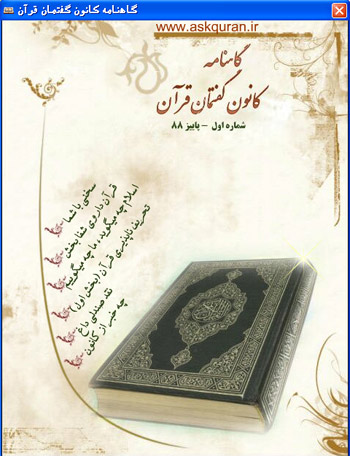 گاهنامه کانون گفتمان قرآن
www.askquran.ir
گاهنامه
کانون گفتمان قرآن
شماره اول - پاییز ۸۸
سخنی با شما
قرآن داروی شفا بخش
اسلام چه میگوید، ما چه میگوییم
تحریف ناپذیری قرآن (بخش اول)
نقد صندلی داغ
چه خبر از کانون